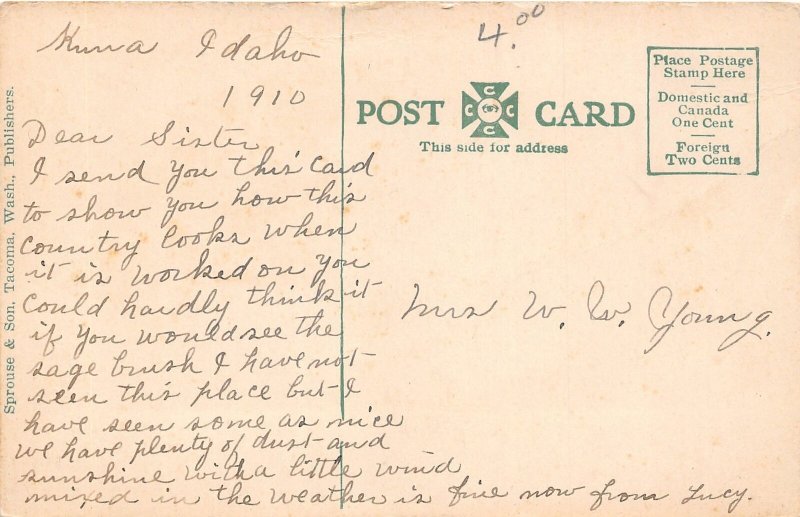 Kuna Idaho
1910
Dear Sister
I send you this card
to show you how this
country looks when
it is worked on you
could hardly think it
if you would see the
sage brush I have not
seen this place but I
have seen some as nice
we have plenty of dust and
sunshine with a little wind
mixed in the weather is fine now from Lucy.
4.00
POST CARD
C C C C
This side for address
Place Postage
Stamp Here
Domestic and
Canada
One Cent
Foreign
Two Cents
Mrs W. W. Young.
Sprouse & Son, Tacoma, Wash., Publishers.